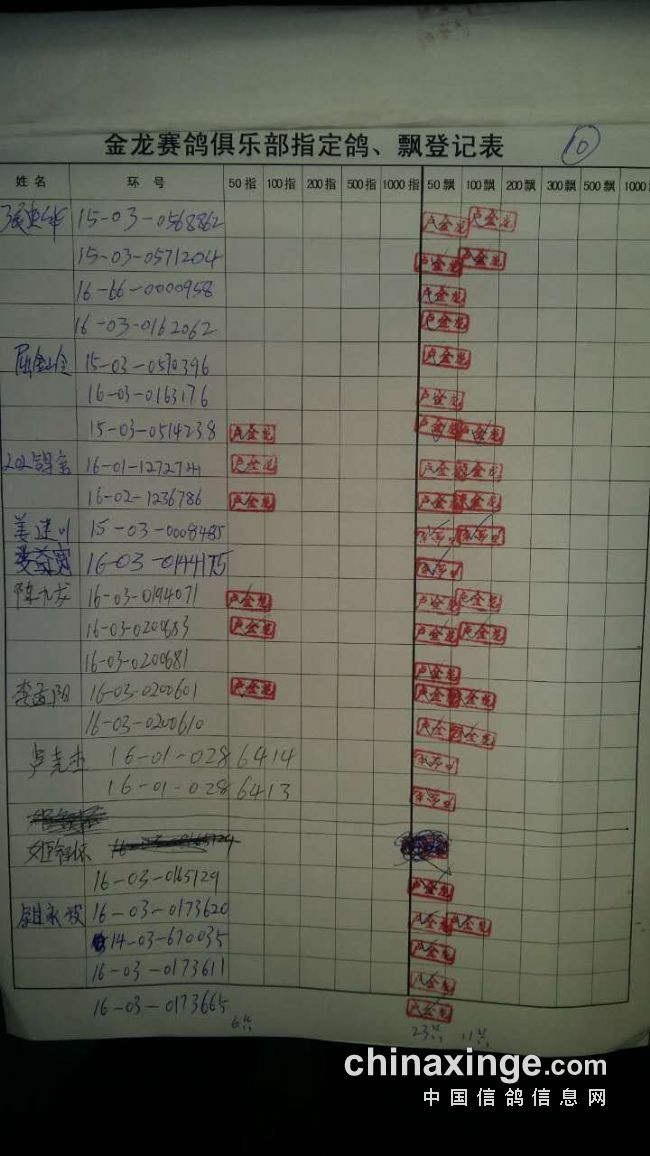 金龙赛鸽俱乐部指定鸽、飘登记表 10
姓名 环号 50指 100指 200指 500指 1000指 50飘 100飘 200飘 300飘 500飘 1000
15-03-0568862 卢金龙 卢金龙
15-03-0571204 卢金龙 卢金龙
16-66-0000958 卢金龙
16-03-0162062 卢金龙
15-03-0570396 卢金龙
16-03-0163176 卢金龙
15-03-0514238 卢金龙 卢金龙 卢金龙
202鸽舍 16-01-1272741 卢金龙 卢金龙 卢金龙
16-02-1236786 卢金龙 卢金龙 卢金龙
姜建川 15-03-0008485
16-03-0144175
陈九龙 16-03-0194071 卢金龙 卢金龙 卢金龙
16-03-0200683 卢金龙 卢金龙 卢金龙
16-03-0200681 卢金龙
李孟阳 16-03-0200601 卢金龙 卢金龙 卢金龙
16-03-0200610 卢金龙 卢金龙
卢克杰 16-01-0286414
16-01-0286413
16-03-0165129 卢金龙
16-03-0173620 卢金龙 卢金龙
14-03-670035 卢金龙
16-03-0173611 卢金龙
16-03-0173665 卢金龙
6 23 11
chinaxinge.com
中国信鸽信息网